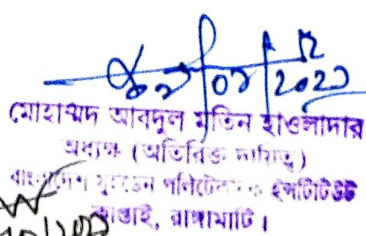 মোহাম্মদ আবদুল মতিন হাওলাদার
অধ্যক্ষ (অতিরিক্ত দায়িত্ব)
বাংলাদেশ সুইডেন পলিটেকনিক ইন্সটিটিউট
কাপ্তাই, রাঙ্গামাটি।